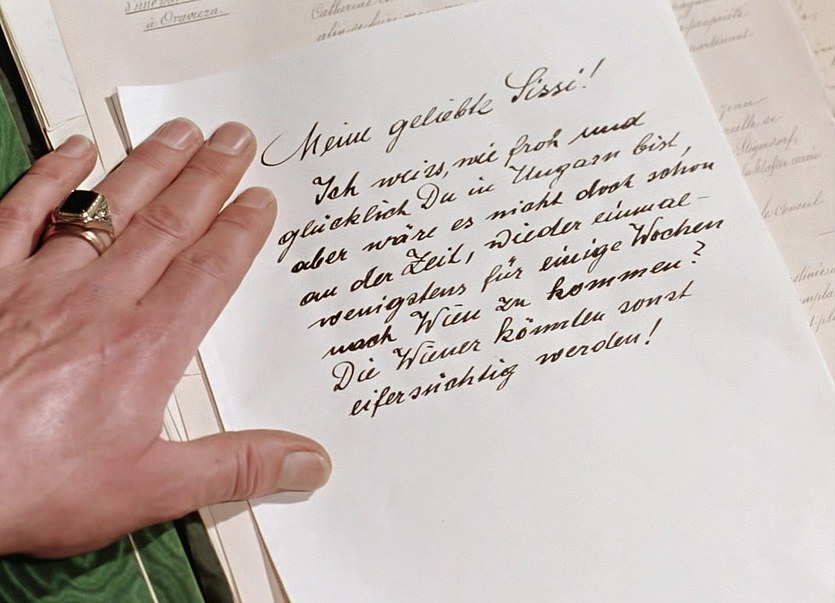 à Oravicza.
Catherine
Meine geliebte Sissi!
Ich weiss, wie froh und
glücklich Du in Ungarn bist,
aber wäre es nicht doch schon
an der Zeit, wieder einmal -
wenigstens für einige Wochen
nach Wien zu kommen?
Die Wiener könnten sonst
eifersüchtig werden!
Jean
le Conseil